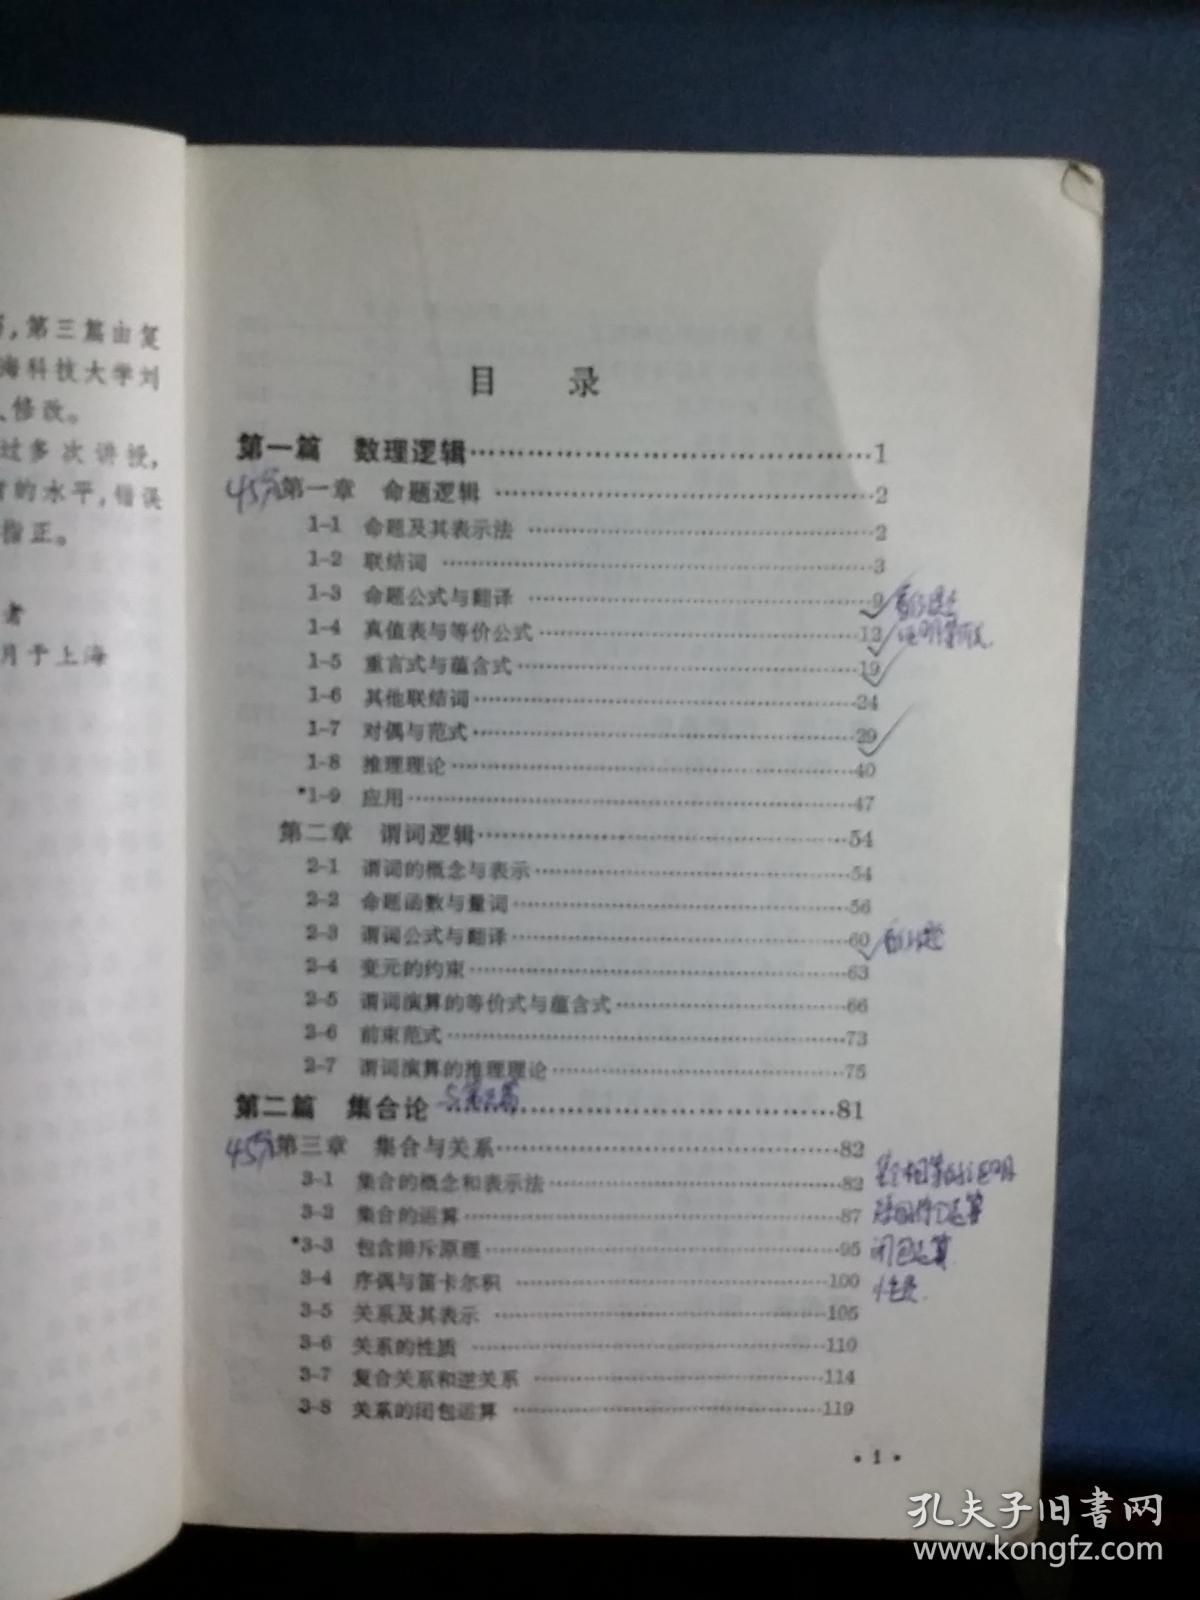 第三篇由复
海科技大学刘
修改。
过多次讲授,
的水平,错误
指正。
者
月于上海
目 录
第一篇 数理逻辑……1
45分
第一章 命题逻辑……2
1-1 命题及其表示法……2
1-2 联结词……3
1-3 命题公式与翻译……9
1-4 真值表与等价公式……12
1-5 重言式与蕴含式……19
1-6 其他联结词……24
1-7 对偶与范式……29
1-8 推理理论……40
*1-9 应用……47
第二章 谓词逻辑……54
2-1 谓词的概念与表示……54
2-2 命题函数与量词……56
2-3 谓词公式与翻译……60
2-4 变元的约束……63
2-5 谓词演算的等价式与蕴含式……66
2-6 前束范式……73
2-7 谓词演算的推理理论……75
第二篇 集合论……81
45分
第三章 集合与关系……82
3-1 集合的概念和表示法……82
3-2 集合的运算……87
*3-3 包含排斥原理……95
闭包运算
3-4 序偶与笛卡尔积……100
性质.
3-5 关系及其表示……105
3-6 关系的性质……110
3-7 复合关系和逆关系……114
3-8 关系的闭包运算……119
• 1 •
孔夫子旧书网
www.kongfz.com